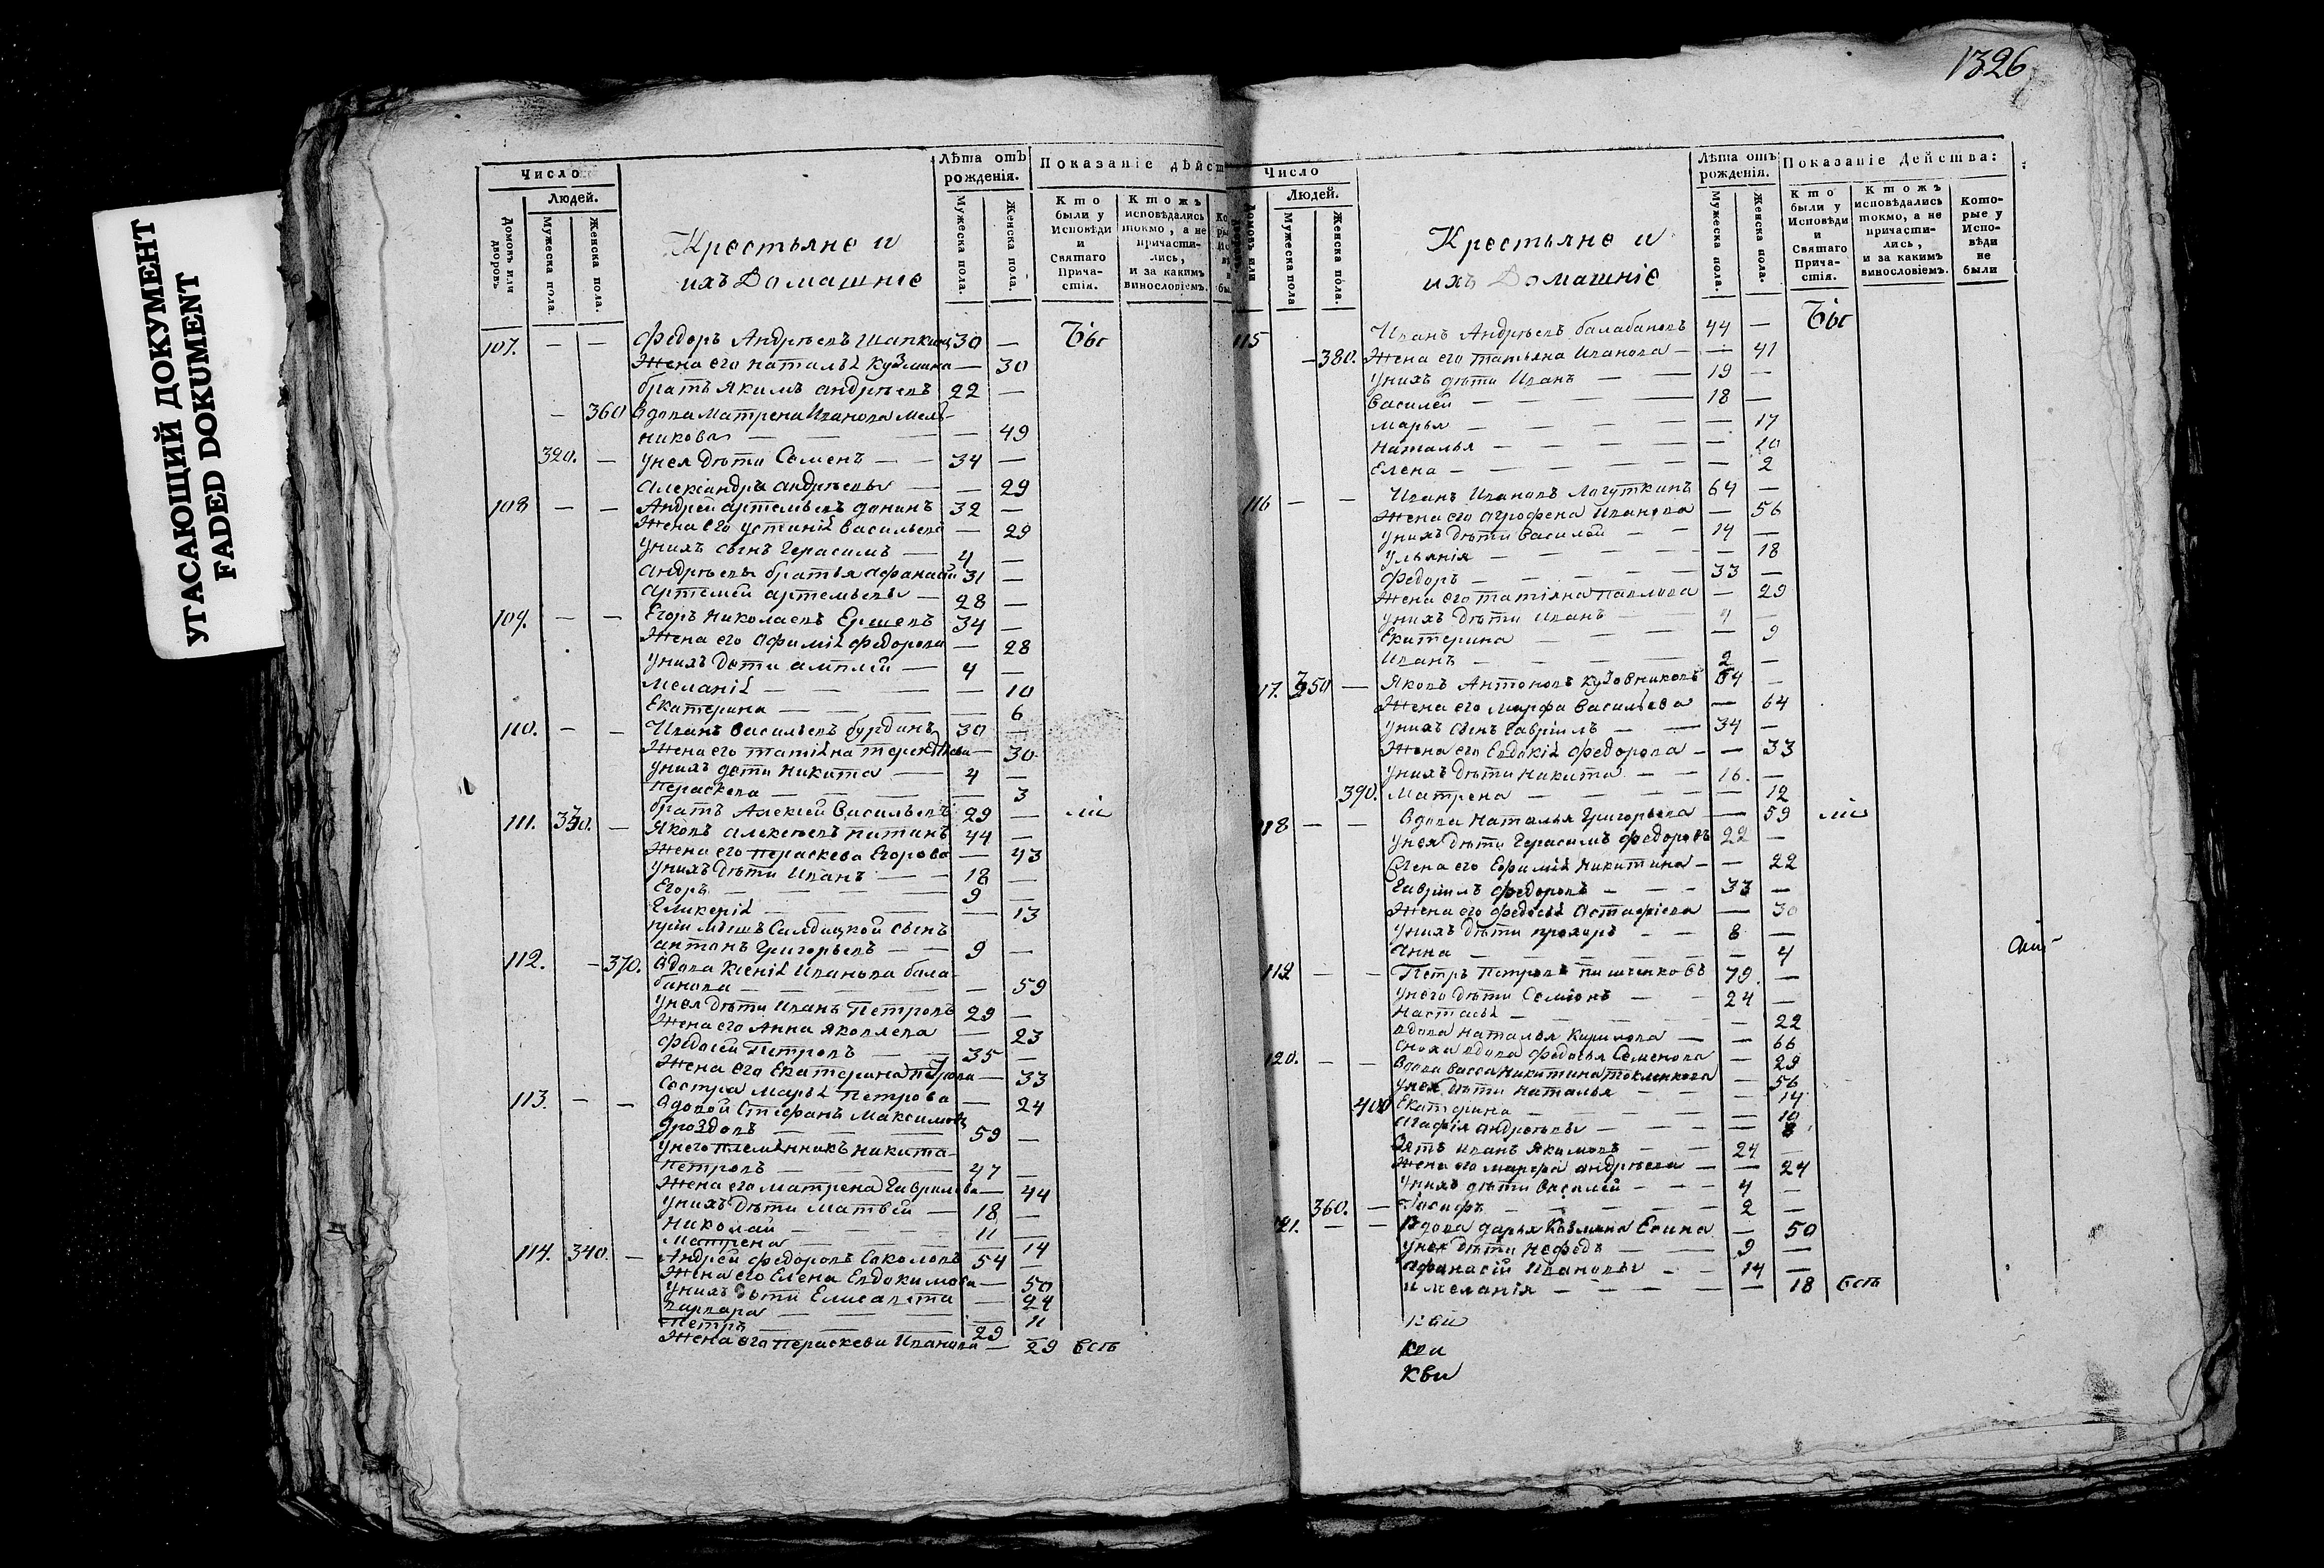 1326
УГАСАЮЩИЙ ДОКУМЕНТ
FADED DOKUMENT
Число
Людей.
Домовъ или дворовъ
Мужеска пола.
Женска пола.
Крестьяне и
ихъ Домашніе
Лѣта отъ рожденія.
Мужеска пола.
Женска пола.
Показаніе дѣйст
Кто были у Исповѣди и Святаго Причастія.
Ктожъ исповѣдались токмо, а не причастились, и за какимъ винословіемъ.
107. — — Федоръ Андрѣевъ Шапкинъ 30 —
Жена его наталья Кузмина — 30
братъ Якимъ андрѣевъ 22 —
— 360 вдова Матрена Иванова Мель-
никова — — 49
320. — унея дѣти Семенъ — 34 —
Александра андрѣевы — — 29
108 — — Андрей артемьевъ донинъ 32 —
Жена его устинія васильева — 29
унихъ сынъ Герасимъ — 4 —
андрѣевы братья афанасій 31 —
артемей артемьевы — 28 —
109. — — Егоръ Николаевъ Ершевъ 34 —
Жена его афимія федорова — 28
унихъ дѣти 4 —
меланія — — 10
Екатерина — — 6
110. — — Иванъ васильевъ бурдинъ 30 —
Жена его татіяна — 30
унихъ дѣти никита — 4 —
Пераскева — — 3
братъ Алексей Васильевъ 29 —
111. 330. — Яковъ алексѣевъ питинъ 44 —
Жена его пераскева Егорова — 43
унихъ дѣти Иванъ — 18 —
Егоръ — 9 —
Гликерія — — 13
при Салдацкой сынъ
антонъ Григорьевъ — 9 —
112. — 370. вдова Ксенія Иванова бала-
банова — — 59
унея дѣти Иванъ Петровъ 29 —
Жена его Анна Яковлева — 23
Федосей Петровъ — 35 —
Жена его Екатерина Петрова — 33
Сестра Марья Петрова — 24
113. — — вдовой Стефанъ Максимовъ
Дроздовъ — 59 —
унего племянникъ никита
петровъ — 47 —
Жена его матрена Гаврилова — 44
унихъ дѣти Матвей — 18 —
николай — 11 —
Матрена — — 14
114. 340. — Андрей федоровъ Соколовъ 54 —
Жена его Елена Евдокимова — 50
унихъ дѣти Елисавета — 24
варвара — — 11
Петръ — 29 —
Жена его пераскева Иванова — 29 есть
Число
Людей.
Домовъ или дворовъ
Мужеска пола
Женска пола.
Крестьяне и
ихъ Домашніе
Лѣта отъ рожденія.
Мужеска пола.
Женска пола.
Показаніе Действа:
Кто были у Исповѣди и Святаго Причастія.
Ктожъ исповѣдались токмо, а не причастились, и за какимъ винословіемъ.
Которые у Исповѣди не были
115 Иванъ Андрѣевъ балабановъ 44 —
— 380. Жена его татьяна Иванова — 41
унихъ дѣти Иванъ — 19 —
Василей — 18 —
Марья — — 17
Наталья — — 10
Елена — — 2
116 — — Иванъ Ивановъ Логуткинъ 64 —
Жена его агрофена Иванова — 56
унихъ дѣти василей — 14 —
ульянія — — 18
Федоръ — 33 —
Жена его татіяна павлова — 29
унихъ дѣти иванъ —
Екатерина — — 9
Иванъ — 2 —
17. 350 — Яковъ Антоновъ 64 —
Жена его марфа васильева — 64
унихъ сынъ гавріилъ — 34 —
Жена его Евдокія федорова — 33
унихъ дѣти никита — 16. —
390. Матрена — — 12
18 — — вдова Наталья Григорьева — 59
унея дѣти Герасимъ федоровъ 22 —
жена его Ефимія никитина — 22
гавріилъ федоровъ — 33 —
Жена его федосья астафіева — 30
унихъ дѣти прохоръ — 8 —
анна — — 4
119 — — Петръ Петровъ 79. —
унего дѣти Семіонъ — 24 —
настасья — — 22
вдова наталья кирилова — 66
сноха вдова федосья Семенова — 29
120. — — вдова васса никитина — 56
унея дѣти наталья — — 14
400 Екатерина — — 10
агафія андрѣевы — — 8
Зять Иванъ Якимовъ — 24 —
Жена его марфа андрѣева — 24
унихъ дѣти василей — 4 —
360. — Іосифъ — 2 —
121. — — вдова дарья Козмина Есина — 50
унея дѣти Нефедъ — 9 —
афанасій Ивановы — 14 —
и меланія — — 18 есть
кви